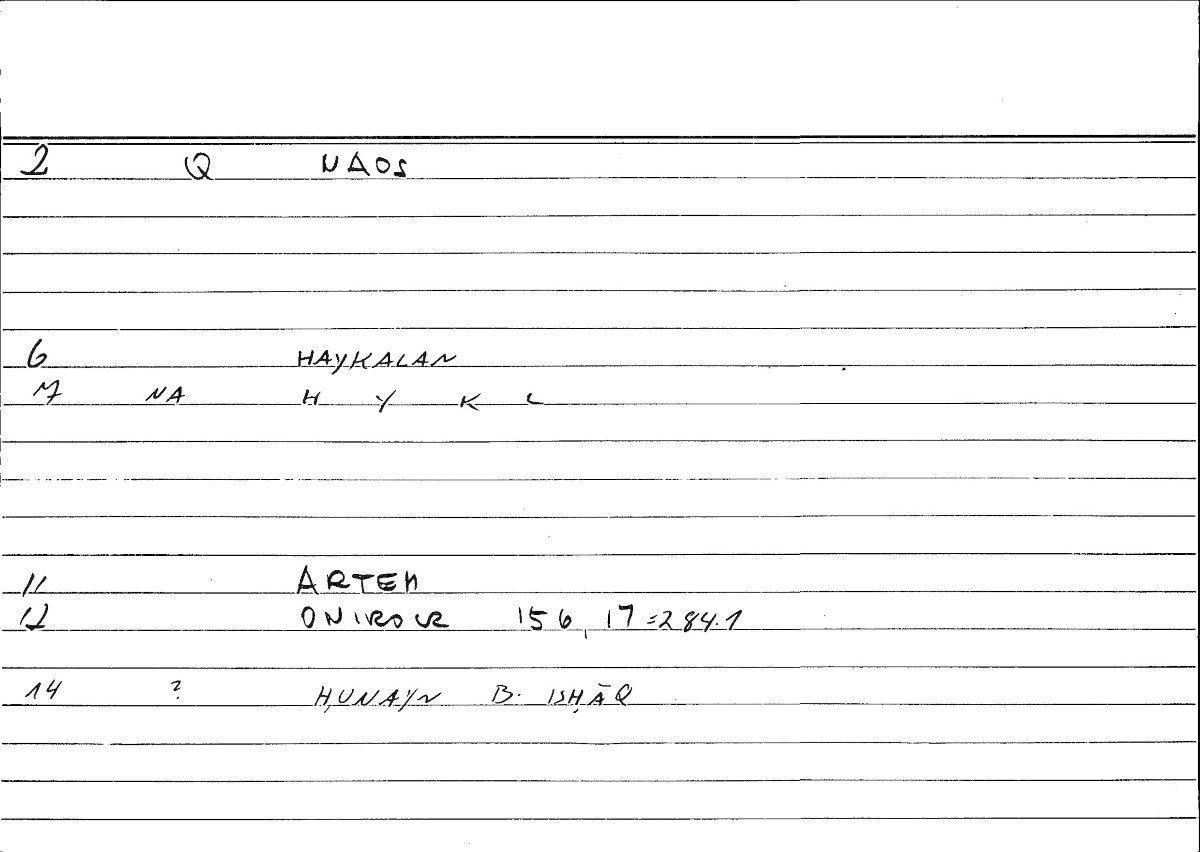 2 Q NAOS
6 HAYKALAN
7 NA H Y K L
11 ARTEM
12 ONIROCR 156, 17=284.1
14 ? ḤUNAYN B. ISḤĀQ